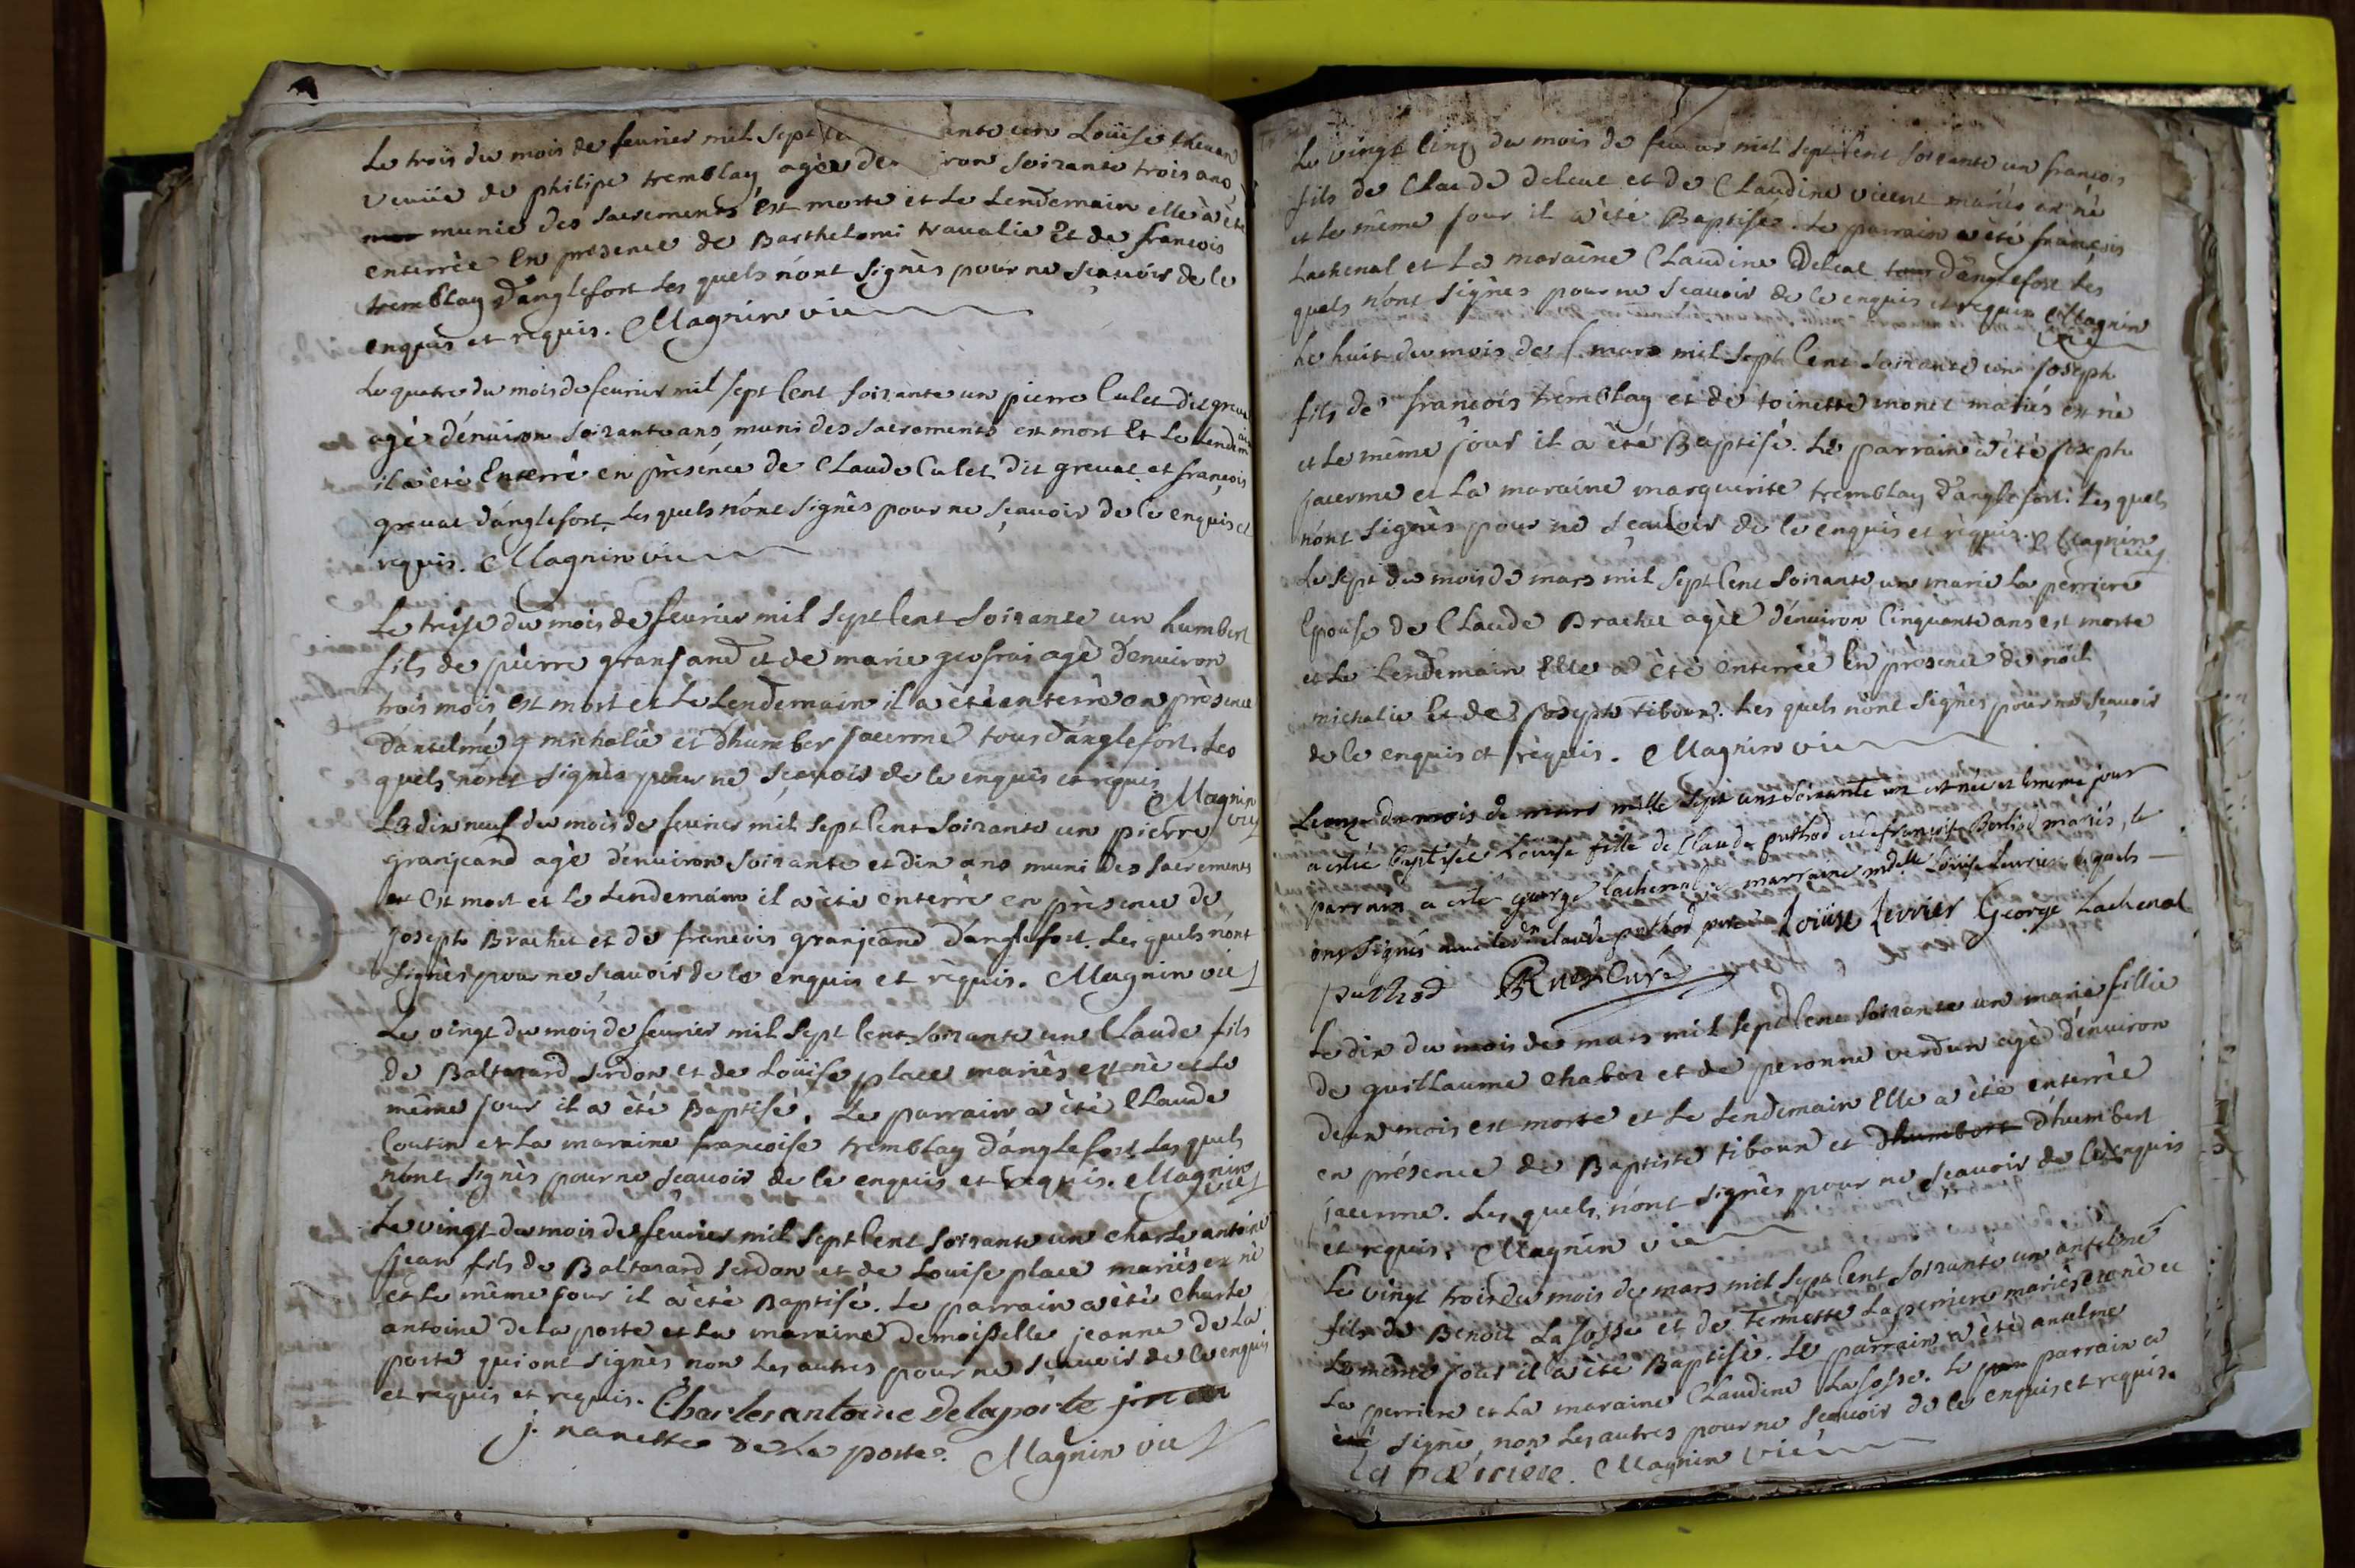 Le trois du mois de feurier mil sept ce ante un Loüise theuen
veuüe de philipe tremblay agèe de iron soixante trois ans
munie des sacrements est morte et Le Lendemain elle à etè
enterrèe en presence de Barthelemi traualie et de francois
tremblay d'anglefort Les quels n'ont signès pour ne sçauoir de ce
enquis et requis. Magnin vic
Le quatre du mois de feurier mil sept Cent soixante un pierre Culet dit greua
agè d'énuiron soixante ans muni des sacrements est mort et Le Lendemain
il a étè enterrè en prèsénce de Claude Culet dit greuat et francois
greuat d'anglefort Les quels n'ont signès pour ne sçauoir de ce enquis et
requis. Magnin vic
Le treise du mois de feurier mil sept Cent soixante un humbert
fils de pierre granjand et de marie geofrai agè d'énuiron
trois mois est mort et Le Lendemain il a ètè enterrè en prèsence
d'antelme michalié et d'humber jacerme tous d'anglefort. Les
quels n'ont signès pour ne sçauoir de ce enquis et requis
Magnin vic
Le dix neuf du mois de feurier mil sept Cent soixante un pierre
granjeand agè d'énuiron soixante et dix ans muni des sacrements
est mort et Le Lendemain il a ètè enterrè en prèsence de
joseph Brachet et de francois granjeand d'anglefort. Les quels n'ont
signès pour ne sçauoir de ce enquis et rèquis. Magnin vic
Le vingt du mois de feurier mil sept Cent soixante un Claude fils
de Baltazard serdon et de Loüise place mariès est nè et Le
même jour il a ètè Baptisè. Le parrain a ètè Claude
Coutin et La maraine francoise tremblay d'anglefort Les quels
n'ont signès pour ne sçauoir de ce enquis et requis. Magnin
vic
Le vingt du mois de feurier mil sept Cent soixante un charle antoine
jean fils de Baltazard serdon et de Louise place mariès est nè
et Le même jour il à ètè Baptisè. Le parrain a ètè charle
antoine de La porte et La maraine demoiselle jeanne de La
porte qui ont signès non Les autres pour ne sçauoir de ce enquis
et requis et requis. Charles antoine Delaporte
j. nanette De La porte. Magnin vic
Le vingt Cinq du mois de feurier mil sept Cent soixante un francois
fils de Claude deleal et de Claudine vicent mariés est né
et Le même jour il a été Baptisé. Le parrain a été francois
Lachenal et La maraine Claudine Deleal d'anglefort Les
quels n'ont signès pour ne sçauoir de ce enquis et requis Magnin
vic
Le huit du mois de mars mil sept Cent soixante un joseph
fils de francois tremblay et de toinette monet mariés est né
et Le même jour il a étè Baptisé. Le parrain a étè joseph
jacerme et La maraine marguerite tremblay d'anglefort. Les quels
n'ont signès pour ne sçauoir de ce enquis et rèquis. Magnin
vic
Le sept du mois de mars mil sept Cent soixante un marie La perriere
Epouse de Claude Brachet agèe d'énuiron Cinquante ans est morte
et Le Lendemain Elle a étè enterrèe En prèsence de noël
michalie et de joseph tiboun. Les quels n'ont signès pour ne sçauoir
de ce enquis et rèquis. Magnin vic
Le onze du mois de mars mille sept cent soixante un est née et le meme jour
a eté baptisée Loüise fille de Claude puthod et de françoise Berlioz mariés, le
parrain a eté george lachenal et marraine mdelle Loüise Levrier lequels
ont signés auec led.n claude puthod pere Loüise Levrier George Lachenal
puthod Rubi Curé
Le dix du mois de mars mil sept Cent soixante un marie fillie
de guillaume chaboz et de peronne verdun agè d'énuiron
deux mois est morte et Le Lendemain Elle a étè enterrèe
en présence de Baptiste tiboun et dhumbert D'humbert
jacerme. Les quels n'ont signès pour ne sçauoir de ce enquis
et requis. Magnin vic
Le vingt trois du mois de mars mil sept Cent soixante un antelme
fils de Benoit La fosse et de Termette La perriere mariès est nè et
Le même jour il a étè Baptisè. Le parrain a étè antelme
La perriere et La maraine Claudine La fosse. Le parrain a
étè signé, non Les autres pour ne sçauoir de ce enquis et requis.
la pèrriere. Magnin vic